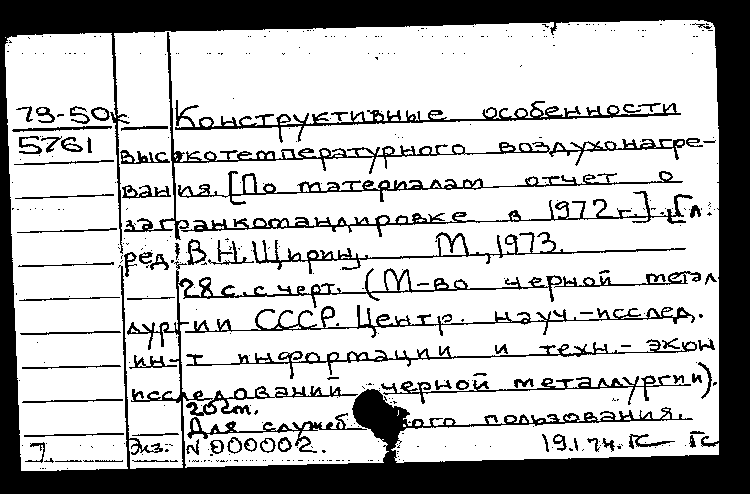 79-50к Конструктивные особенности
5761 высокотемпературного воздухонагре-
вания. [По материалам отчет о
загранкомандировке в 1972 г.]. [Гл.
ред. В.Н. Ширин]. М., 1973.
28 с. с черт. (М-во черной метал
лургии СССР. Центр. науч.-исслед.
ин-т информации и техн.-экон
исследований черной металлургии).
20 см.
Для служеб ого пользования.
7. Экз. N 000002. 19.1.74. ГС